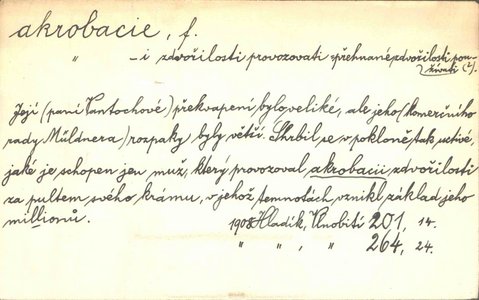 akrobacie, f.
" -i zdvořilosti provozovati = přehnané zdvořilosti pou-
žívati (?).
Její (paní Vantochové) překvapení bylo veliké, ale jeho (komerčního
rady Müldnera) rozpaky byly větší. Shrbil se v pokloně tak uctivé,
jaké je schopen jen muž, který provozoval akrobacii zdvořilosti
za pultem svého krámu, v jehož temnotách vznikl základ jeho
millionů.
1908 Hladík, Vlnobití 201, 14.
" " , " 264, 24.